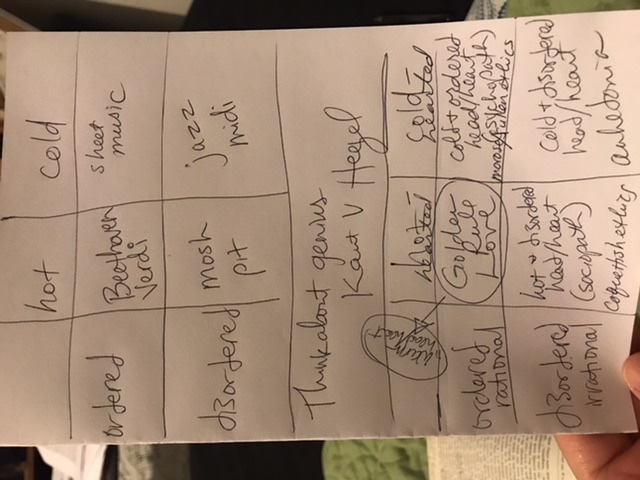 hot cold
ordered Beethoven sheet
Verdi music
disordered mosh jazz
pit midi
Think about genius
Kant V Hegel
hot- cold-
hearted hearted
head/heart
ordered Golden cold + ordered
rational Rule head/heart
Love (psychopath)
ethics
disordered hot + disordered cold + disordered
irrational head/heart head/heart
(sociopath) anhedonia
ethics